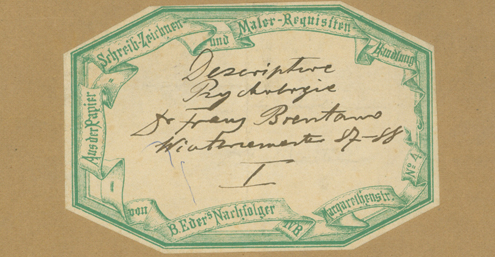 Aus der Papier
Schreib-Zeichnen-
und
Maler-Requisiten-
Handlung
von
B. Eder's Nachfolger
Margarethenstr.
No 4
Descriptive
Psychologie
Dr Franz Brentano
Wintersemester 87-88
I